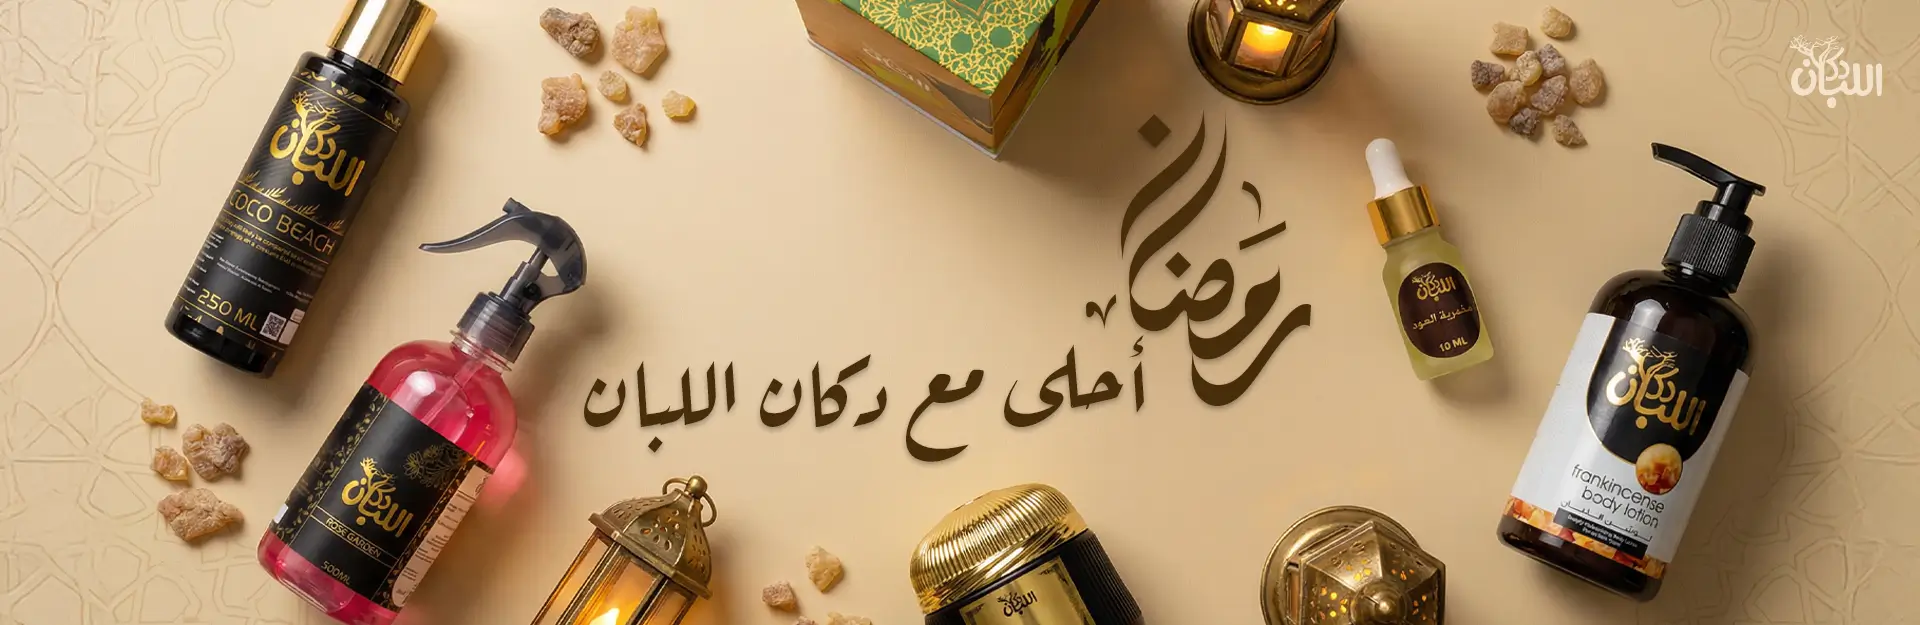 رمضان
أحلى مع دكان اللبان
دكان اللبان
دكان اللبان
COCO BEACH
250 ML
دكان اللبان
ROSE GARDEN
500ML
دكان اللبان
دكان اللبان
مخمرية العود
10 ML
دكان اللبان
frankincense
body lotion
لوشن اللبان